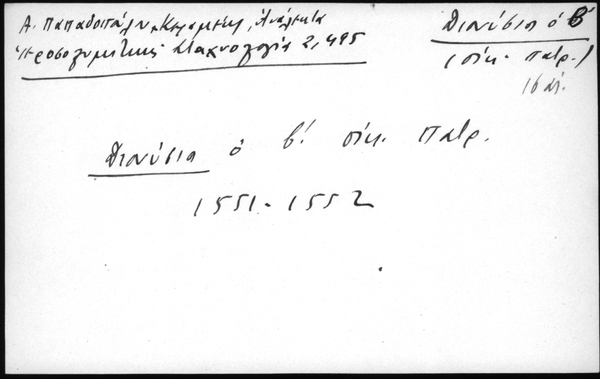 Α. Παπαδοπούλου, Κεραμέως, Ἀνάλεκτα
Ἱεροσολυμιτικῆς Σταχυολογίας 2, 495
Διονύσιο ὁ Β΄
(οἰκ. πατρ.)
16 αἰ.
Διονύσιο ὁ β΄. οἰκ. πατρ.
1551-1552